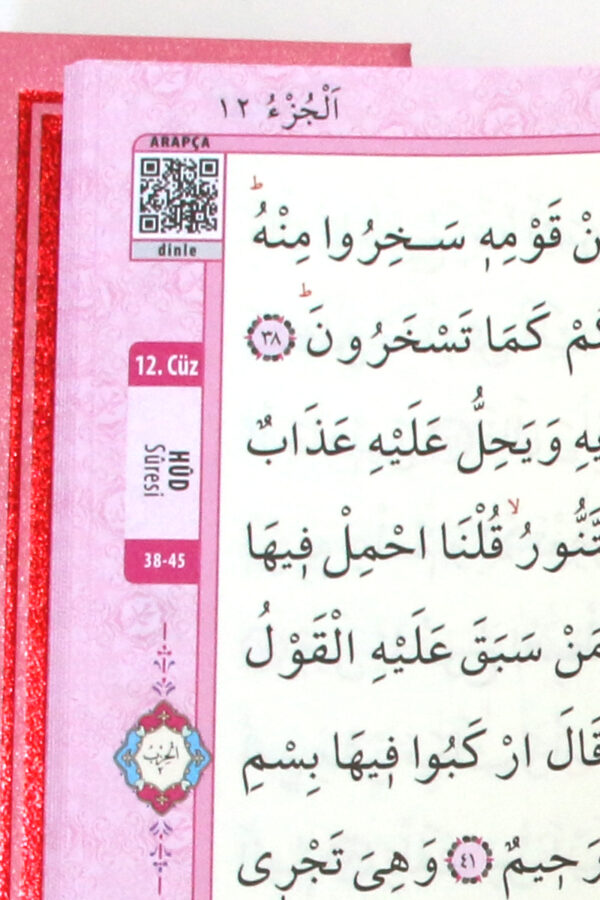 اَلْجُزْءُ ١٢
ARAPÇA
dinle
12. Cüz
HÛD
Sûresi
38-45
الحزب
٢
قَوْمِهٖ سَـخِرُوا مِنْهُۜ
كَمَا تَسْخَرُونَۜ ﴿٣٨﴾
وَيَحِلُّ عَلَيْهِ عَذَابٌ
قُلْنَا احْمِلْ فٖيهَا
سَبَقَ عَلَيْهِ الْقَوْلُ
قَالَ ارْكَبُوا فٖيهَا بِسْمِ
﴿٤١﴾ وَهِىَ تَجْرٖى